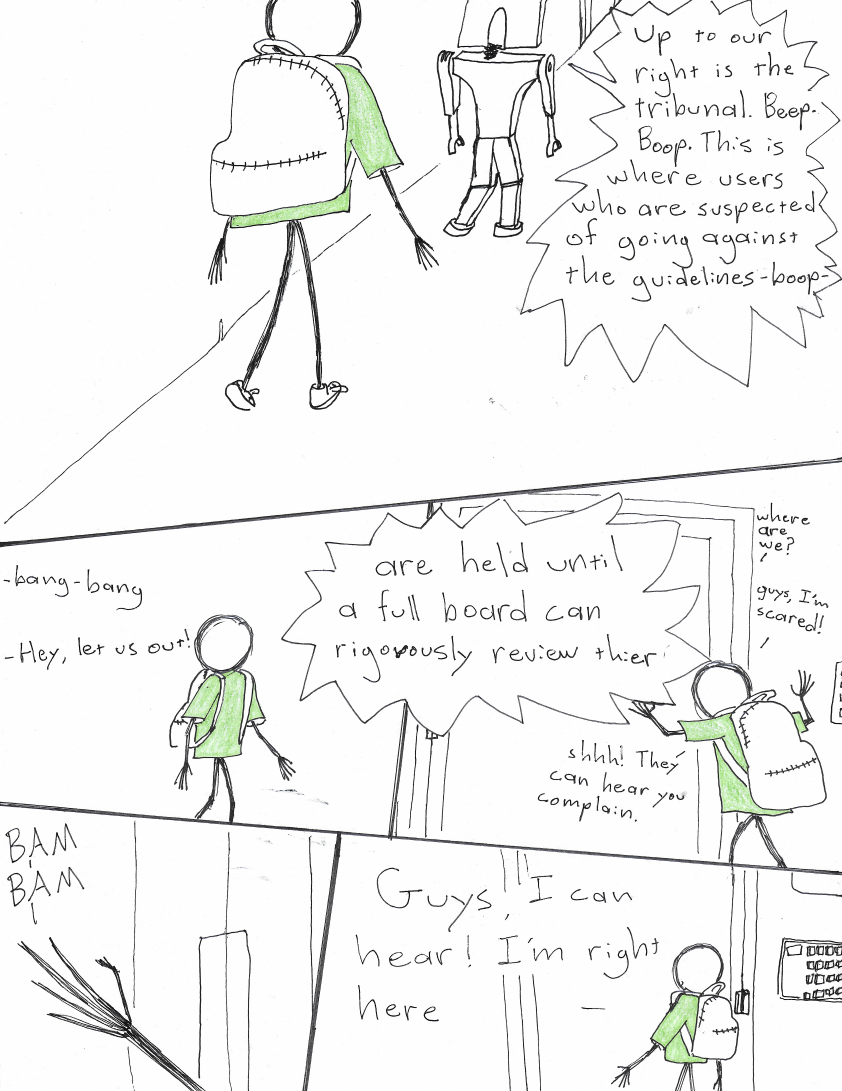 Up to our
right is the
tribunal. Beep.
Boop. This is
where users
who are suspected
of going against
the guidelines-boop-
-bang-bang
-Hey, let us out!
are held until
a full board can
rigorously review thier
where
are
we?
guys, I'm
scared!
shhh! They
can hear you
complain.
BAM
BAM
Guys, I can
hear! I'm right
here -